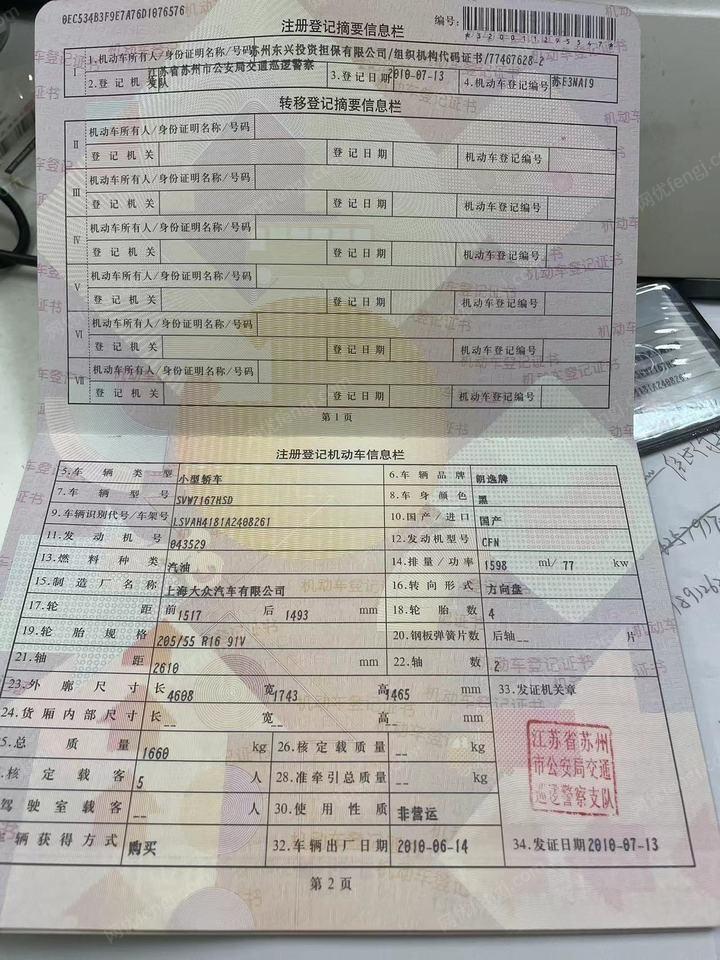 0EC534B3F9E7A76D1076576
注册登记摘要信息栏
编号:
Ⅰ 1.机动车所有人/身份证明名称/号码 苏州东兴投资担保有限公司/组织机构代码证书/77467628-2
2.登记机关 江苏省苏州市公安局交通巡逻警察支队 3.登记日期 2010-07-13 4.机动车登记编号 苏E3NA19
转移登记摘要信息栏
Ⅱ 机动车所有人/身份证明名称/号码
登记机关 登记日期 机动车登记编号
Ⅲ 机动车所有人/身份证明名称/号码
登记机关 登记日期 机动车登记编号
Ⅳ 机动车所有人/身份证明名称/号码
登记机关 登记日期 机动车登记编号
Ⅴ 机动车所有人/身份证明名称/号码
登记机关 登记日期 机动车登记编号
Ⅵ 机动车所有人/身份证明名称/号码
登记机关 登记日期 机动车登记编号
Ⅶ 机动车所有人/身份证明名称/号码
登记机关 登记日期 机动车登记编号
第1页
注册登记机动车信息栏
5.车辆类型 小型轿车 6.车辆品牌 朗逸牌
7.车辆型号 SVW7167HSD 8.车身颜色 黑
9.车辆识别代号/车架号 LSVAH4181A2408261 10.国产/进口 国产
11.发动机号 043529 12.发动机型号 CFN
13.燃料种类 汽油 14.排量/功率 1598 ml/ 77 kw
15.制造厂名称 上海大众汽车有限公司 16.转向形式 方向盘
17.轮距 前 1517 后 1493 mm 18.轮胎数 4
19.轮胎规格 205/55 R16 91V 20.钢板弹簧片数 后轴 -- 片
21.轴距 2610 mm 22.轴数 2
23.外廓尺寸 长 4608 宽 1743 高 1465 mm 33.发证机关章
24.货厢内部尺寸 长 -- 宽 -- 高 -- mm
5.总质量 1660 kg 26.核定载质量 -- kg
核定载客 5 人 28.准牵引总质量 -- kg
驾驶室载客 -- 人 30.使用性质 非营运
车辆获得方式 购买 32.车辆出厂日期 2010-06-14 34.发证日期 2010-07-13
江苏省苏州
市公安局交通
巡逻警察支队
第2页